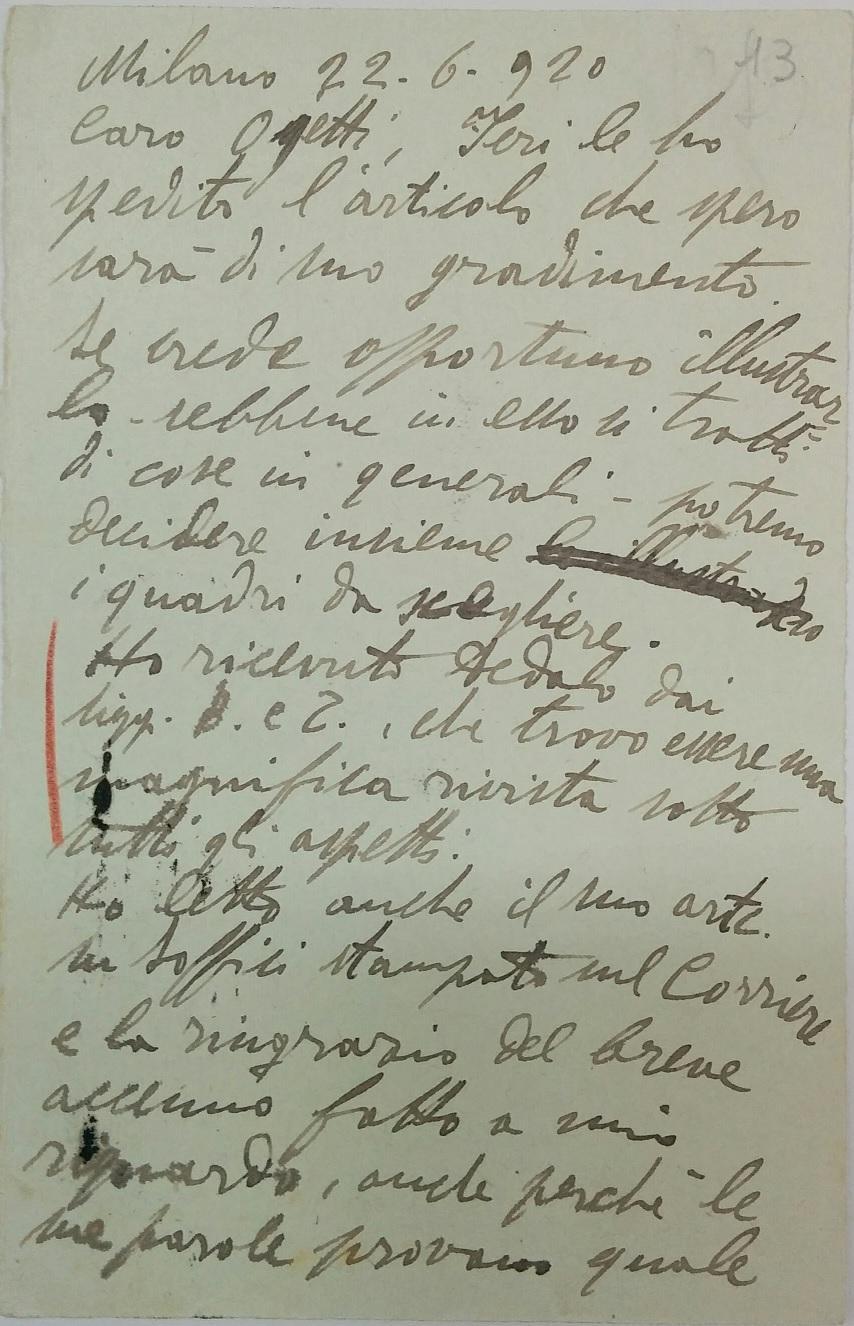 13
Milano 22-6-920
Caro Ogetti, Ieri le ho
spedito l'articolo che spero
sarà di suo gradimento.
Se crede opportuno illustrar
lo - sebbene in esso si tratti
di cose in generali - potremo
decidere insieme
i quadri da scegliere.
Ho ricevuto Dedalo dai
sigg. B. e T., che trovo essere una
magnifica rivista sotto
tutti gli aspetti.
Ho letto anche il suo artc.
su Soffici stampato sul Corriere
e la ringrazio del breve
accenno fatto a mio
riguardo, anche perchè le
sue parole provano quale